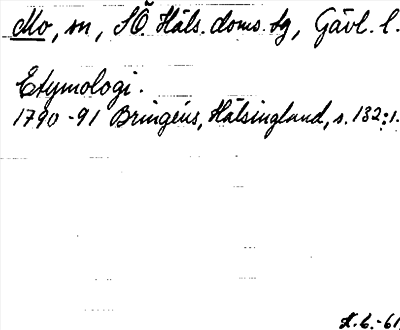 Mo, sn, SÖ Häls. doms. tg, Gävl. l.
Etymologi.
1790-91 Bringéus, Hälsingland, s. 132:1.
H.C.-61